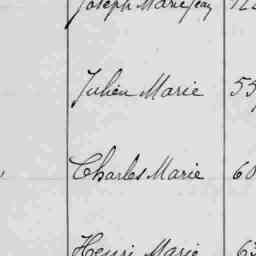 Joseph Marie Jean
Julien Marie 55
Charles Marie 60
Henri Marie